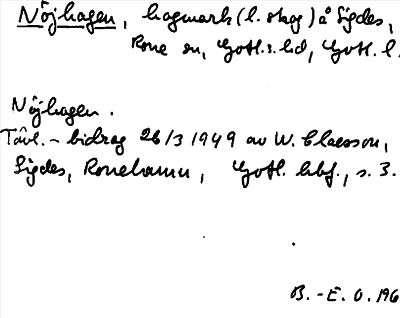 Nöjhagen, hagmark (l. skog) å Sigdes,
Rone sn, Gotl. s. hd, Gotl. l.
Nöjhagen.
Tävl.-bidrag 26/3 1949 av W. Claesson,
Sigdes, Ronehamn, Gotl. hbf., s. 3.
B.-E. O. 196